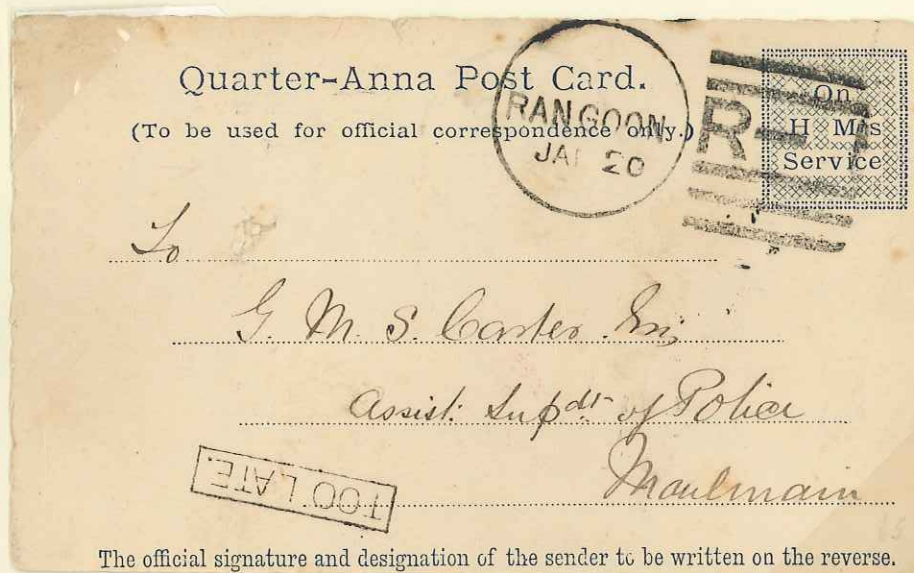 Quarter-Anna Post Card.
(To be used for official correspondence only.)
RANGOON
JAN 20
R-1
On
H Mrs
Service
To
G. M. S. Carter Esq
Assist: Supdt of Police
Moulmain
TOO LATE.
The official signature and designation of the sender to be written on the reverse.